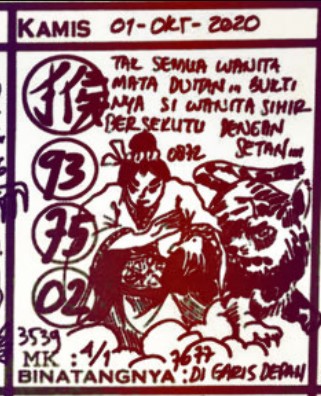 KAMIS 01-OKT-2020
TAK SEMUA WANITA
MATA DUITAN,, BUKTI
NYA SI WANITA SIHIR
BERSEKUTU DENGAN
SETAN,,,
0872
猴
93
75
02
3539
MK : 4/1
7677
BINATANGNYA : DI GARIS DEPAN